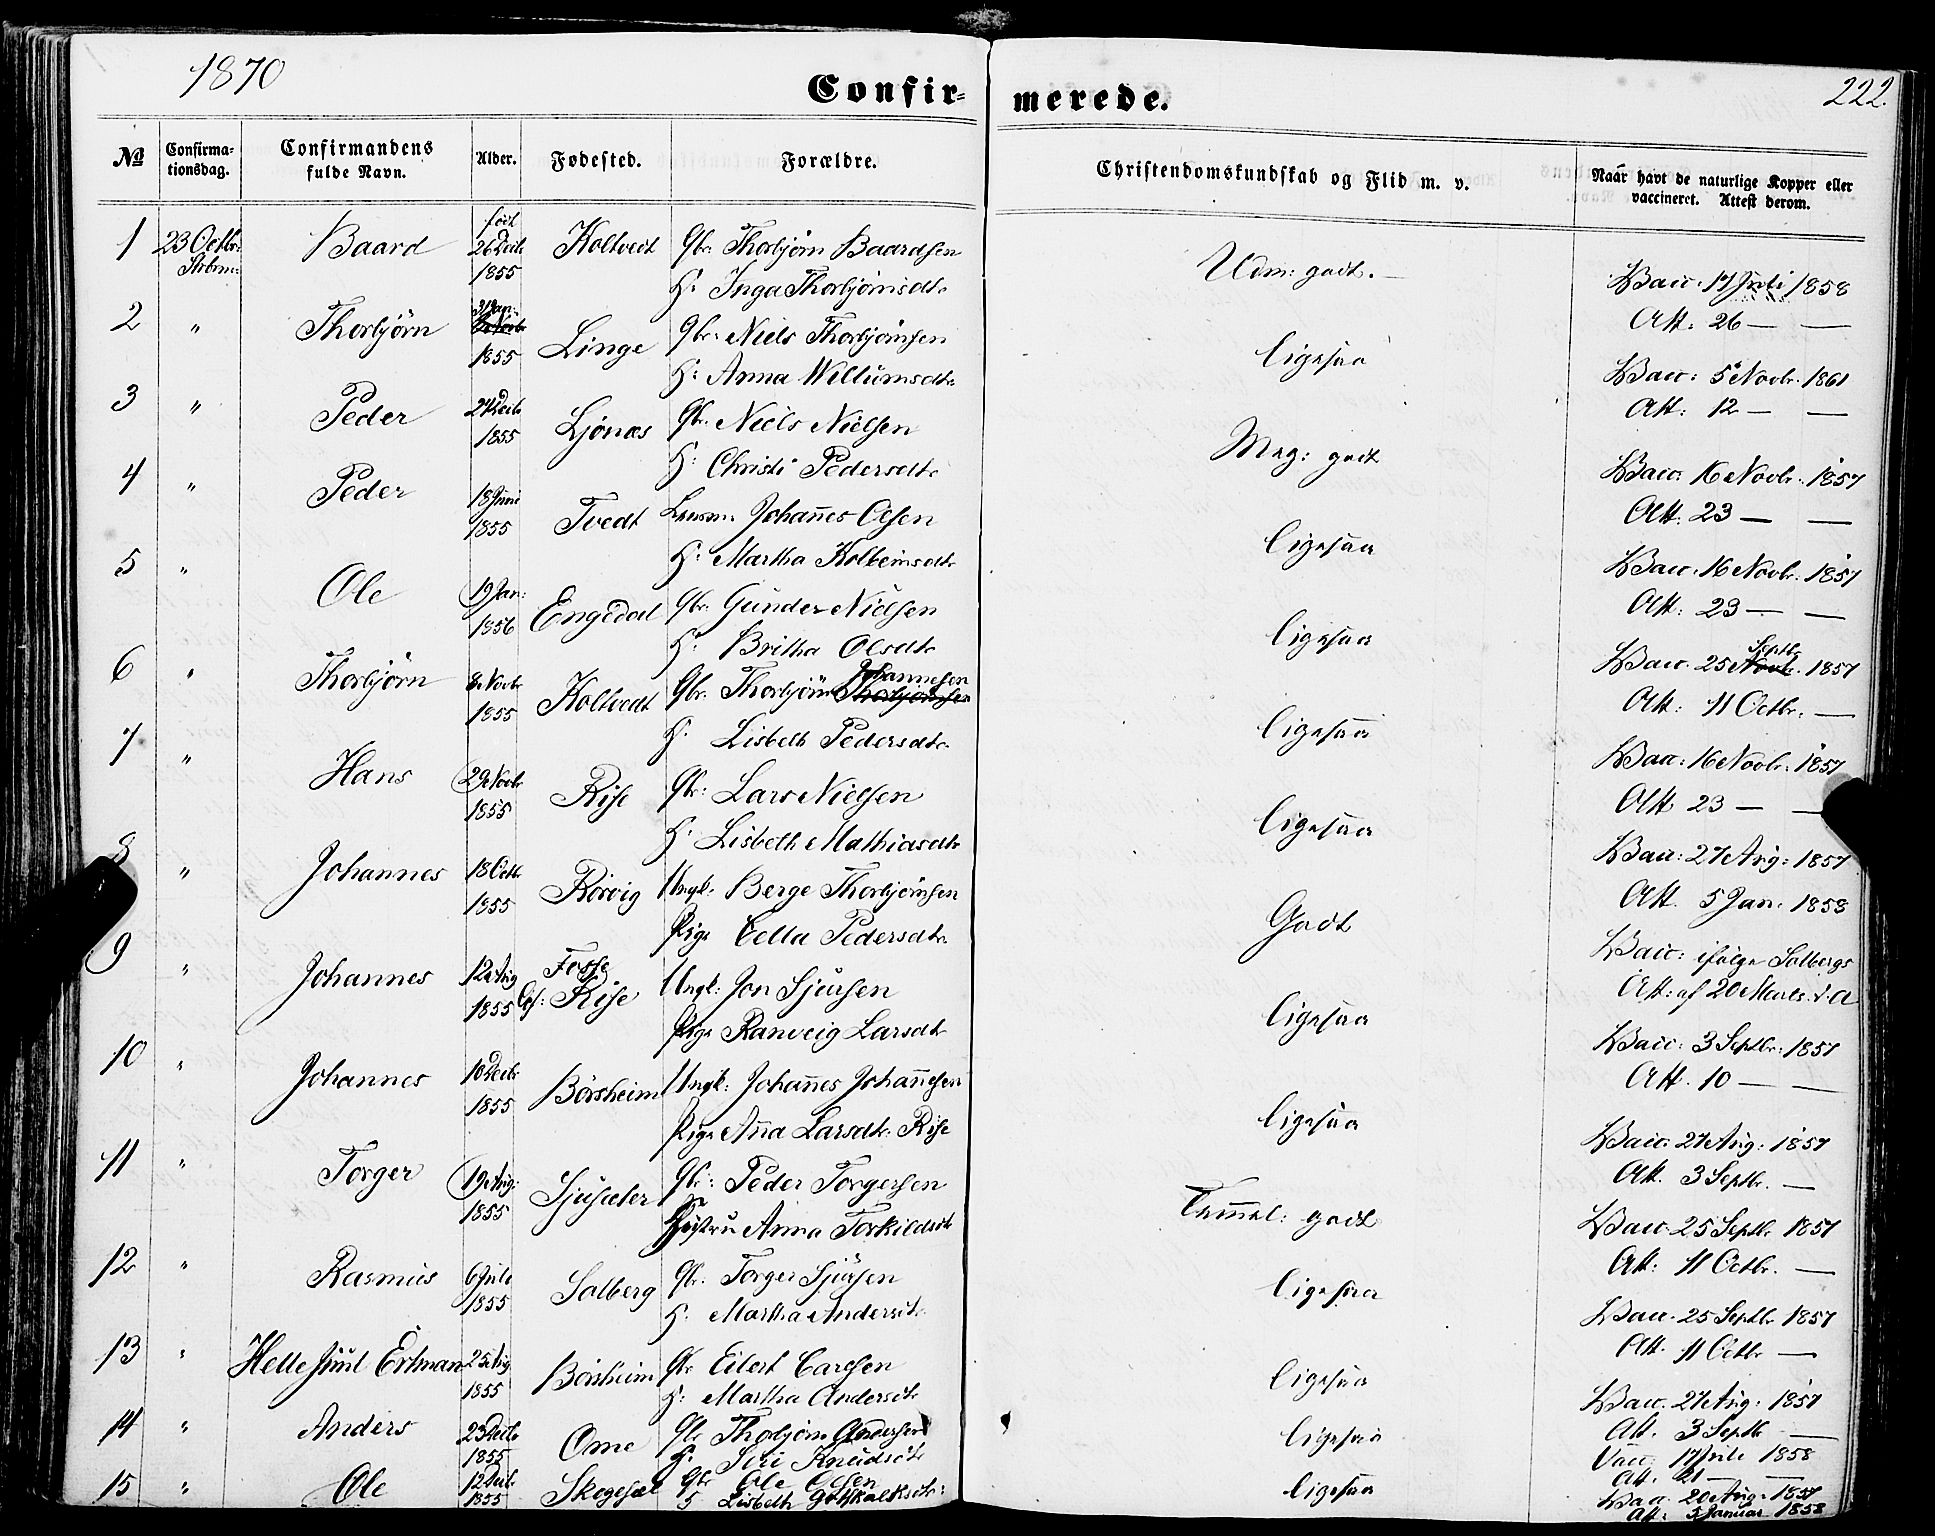 1870
Confir-
merede.
222.
№
Confirma-
tionsdag.
Confirmandens
fulde Navn.
Alder.
Fødested.
Forældre.
Christendomskundskab og Flid m. v.
Naar havt de naturlige Kopper eller
vaccineret. Attest derom.
1 23 Octbr: Baard født 26 Decbr 1855 Koltvedt Gbr. Thorbjørn Baardsen
H: Inga Thorbjørnsdtr
Udm: godt. Vacc. 17 Juli 1858
Att: 26 — —
2 " Thorbjørn 31 Jan: 1855 Linge Gbr: Niels Thorbjørnsen
H: Anna Willumsdtr
ligesaa Vacc: 5 Novbr. 1861
Att: 12 — —
3 " Peder 24 Decbr 1855 Ljønæs Gbr. Niels Nielsen
H: Christi Pedersdtr
Meg: godt Vacc: 16 Novbr. 1857
Att. 23 — —
4 " Peder 18 Juni 1855 Tvedt Lensm. Johannes Olsen
H: Martha Kolbeinsdtr
ligesaa Vacc. 16 Novbr. 1857
Att: 23 — —
5 " Ole 19 Jan: 1856 Engedal Gbr. Gunder Nielsen
H. Britha Olsdtr
ligesaa Vacc. 25 Septbr Novbr. 1857
Att: 11 Octbr. —
6 " Thorbjørn 8 Novbr 1855 Koltvedt Gbr. Thorbjørn Johannesen Thorbjørnsen
H. Lisbeth Pedersdtr
ligesaa Vacc: 16 Novbr. 1857
Att 23 — —
7 " Hans 29 Novbr 1855 Rise Gbr: Lars Nielsen
H. Lisbeth Mathiasdtr
ligesaa Vacc: 27 Aug: 1857
Att. 5 Jan. 1858
8 " Johannes 18 Octbr 1855 Rørvig Ungk: Berge Thorbjørnsen
Pige Cella Pedersdtr
Godt Vacc: ifølge Solbergs
Att: af 20 Marts d. A
9 " Johannes 12 Aug 1855 Fosse Rise Ungk: Jon Sjursen
Pige Ranveig Larsdtr
ligesaa Vacc: 3 Septbr: 1857
Att. 10 — —
10 " Johannes 10 Decbr 1855 Børsheim Ungk: Johannes Johannesen
Pige Anna Larsdtr Rise
ligesaa Vacc. 27 Aug: 1857
Att. 3 Septbr. —
11 " Torger 19 Aug: 1855 Sjusæter Gbr: Peder Torgersen
Hustru Anna Torkildsdtr
Temmel: godt Vacc. 25 Septbr 1857
Att: 11 Octbr. —
12 " Rasmus 6 Juli 1855 Solberg Gbr. Torger Sjursen
H. Martha Andersdtr
ligesaa Vacc. 25 Septbr 1857
Att. 11 Octbr —
13 " Hellesund Ertman 25 Aug 1855 Børsheim Gbr Eilert Carlsen
H: Martha Andersdtr
ligesaa Vacc. 27 Aug: 1857
Att. 3 Septbr —
14 " Anders 23 Decbr 1855 Ome Gbr Thorbjørn Andersen
H. Siri Knudsdtr
ligesaa Vacc. 17 Juli 1858
Att. 21 — —
15 " Ole 12 Decbr 1855 Skogesæl Gbr Ole Olsen
H Lisbeth Gotskalksdtr:
ligesaa Vacc. 20 Aug. 1857
Att: 5 Januar 1858